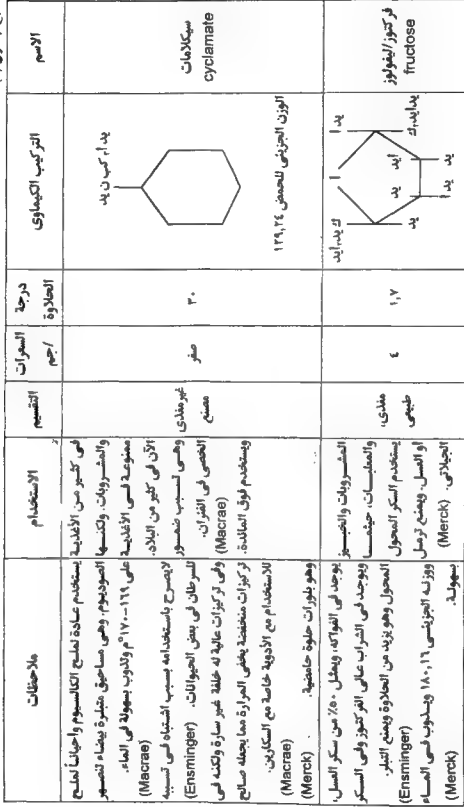 الاسم
التركيب الكيماوى
درجة
الحلاوة
السعرات
/جم
التقسيم
الاستخدام
ملاحظات
سيكلامات
cyclamate
يد ا، كب ن يد
الوزن الجزيئى للحمض ١٣٩,٢٤
٣٠
صفر
غير مغذى
مصنع
فى كثير من الأغذية
والمشروبات. ولكنها
ممنوعة فى الأغذية
الآن فى كثير من البلاد.
وهى تسبب ضمور
الخصى فى الفئران.
(Macrae)
ويستخدم فوق المائدة.
يستخدم عادة لملح الكالسيوم وأحياناً لملح
الصوديوم. وهى مساحيق متبلرة بيضاء تنصهر
على ١٦٩-١٧٠°م وتذوب بسهولة فى الماء.
(Macrae)
لايصرح باستخدامه بسبب اشتباه فى تسببه
للسرطان فى بعض الحيوانات. (Ensminger)
وفى تركيزات عالية له خلفة غير سارة ولكنه فى
تركيزات منخفضة يخفى المرارة مما يجعله صالح
للاستخدام مع الأدوية خاصة مع السكارين.
(Macrae)
وهو بلورات حلوة حامضية.
(Merck)
فركتوز/ليفولوز
fructose
يد ا
ا
يد ا يد، ك
ك يد، ايد
يد
ايد
يد
يد ا
يد
١,٧
٤
طبيعى
مغذى.
المشروبات والخبيز
والمعلبات، حيثما
يستخدم السكر المحول
او العسل. ويمنع ترمل
الجيلاتى. (Merck)
يوجد فى الفواكه، ويمثل ٥٠٪ من سكر العسل،
ويوجد فى الشراب عالى الفركتوز وفى السكر
المحول وهو يزيد من الحلاوة ويمنع التبلر.
(Ensminger)
ووزنه الجزيئى ١٨٠,١٦ ويذوب فى الماء
بسهولة.
(Merck)